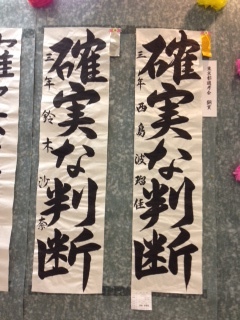 確実な判断
三年 西島 波瑠佳
確実な判断
三年 鈴木 沙奈